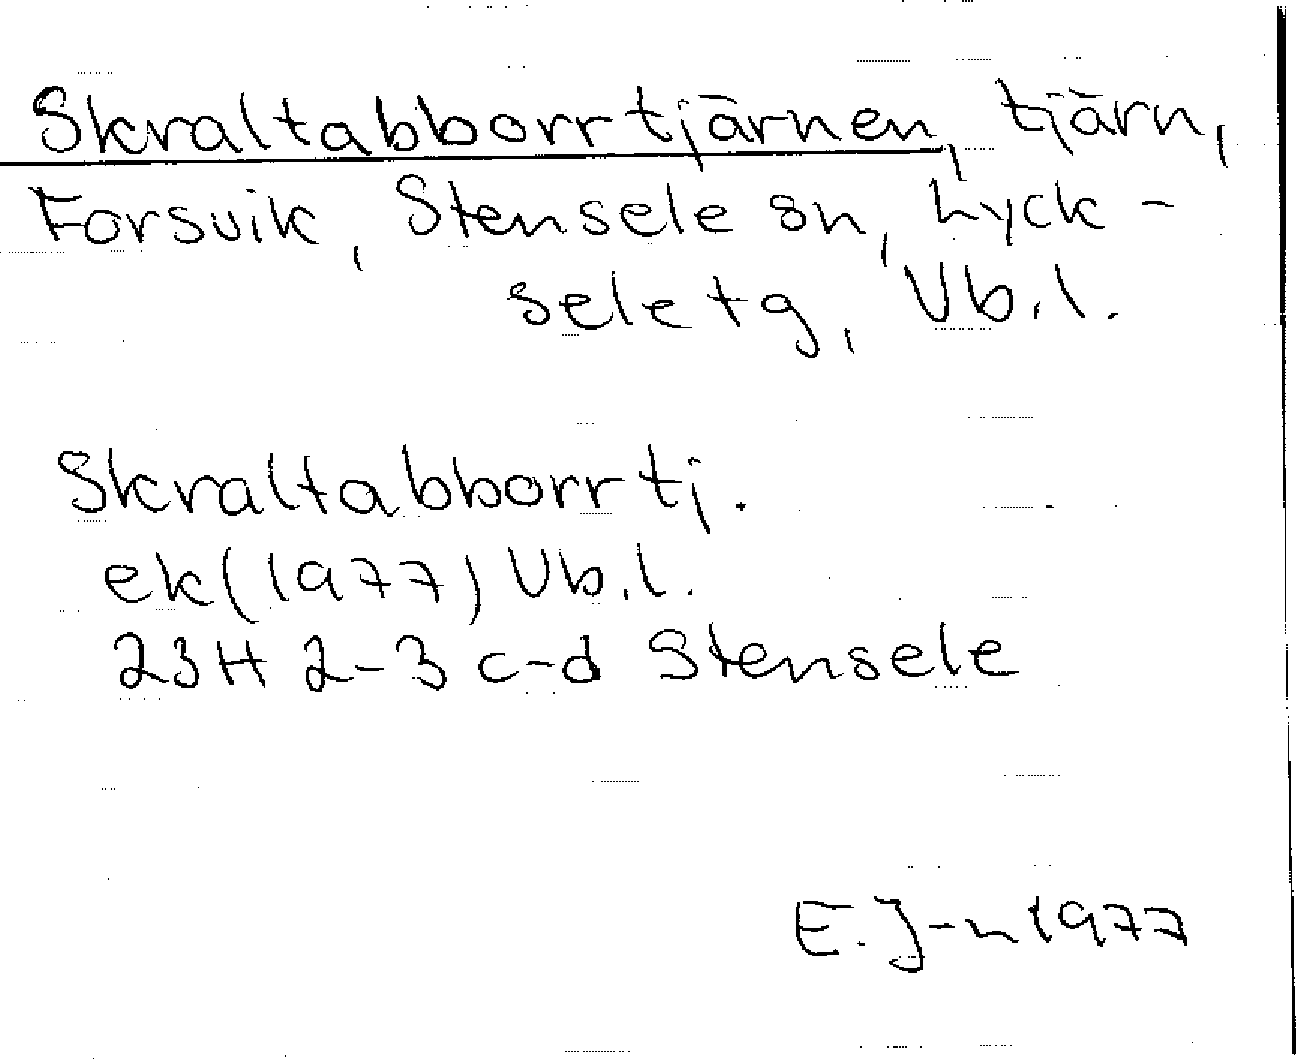 Skraltabborrtjärnen, tjärn,
Forsvik, Stensele sn, Lyck-
sele tg, Vb.l.
Skraltabborrtj.
ek(1977) Vb.l.
23H 2-3 c-d Stensele
E.J-n 1977